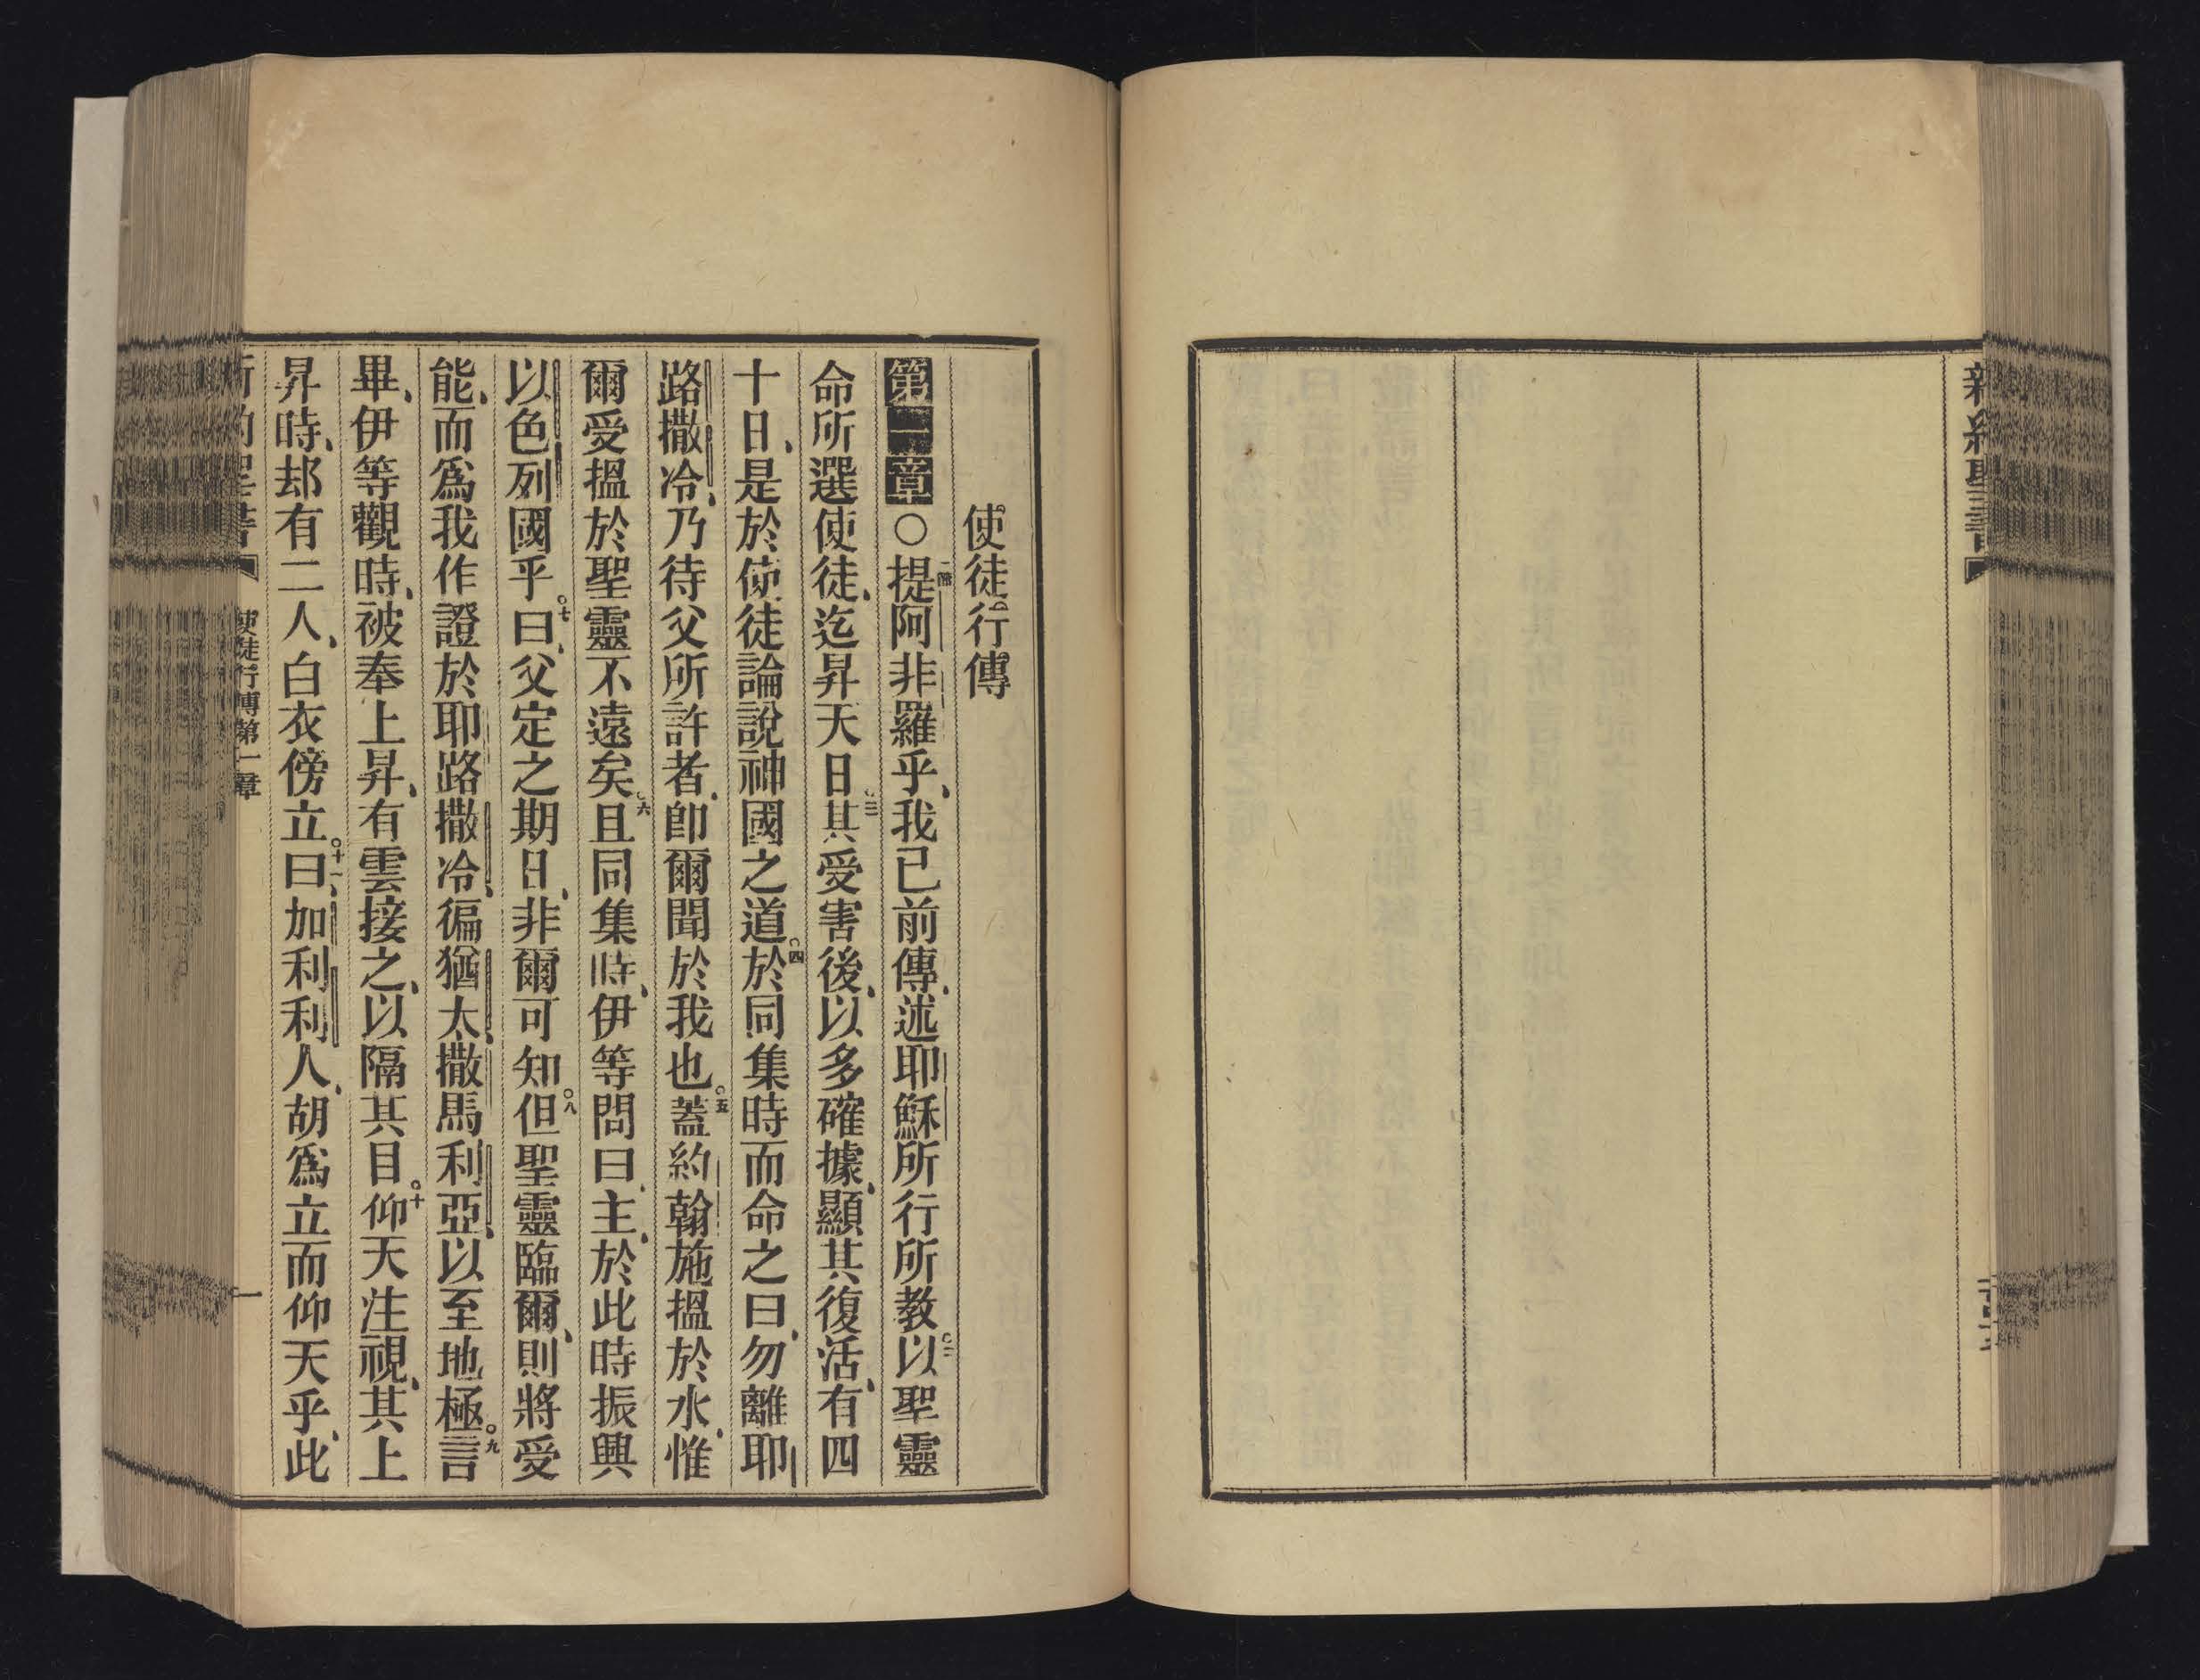 新約聖書
使徒行傳
第一章○一節提阿非羅乎、我已前傳、述耶穌所行所教、○二以聖靈
命所選使徒、迄昇天日、○三其受害後、以多確據、顯其復活、有四
十日、是於使徒論說神國之道、○四於同集時而命之曰、勿離耶
路撒冷、乃待父所許者、卽爾聞於我也、○五蓋約翰施搵於水、惟
爾受搵於聖靈不遠矣、○六且同集時、伊等問曰、主、於此時振興
以色列國乎、○七曰、父定之期日、非爾可知、○八但聖靈臨爾、則將受
能、而爲我作證於耶路撒冷、徧猶太、撒馬利亞、以至地極、○九言
畢、伊等觀時、被奉上昇、有雲接之、以隔其目、○十仰天注視、其上
昇時、却有二人、白衣傍立、○十一曰、加利利人、胡爲立而仰天乎、此
新約聖書
使徒行傳第一章
一